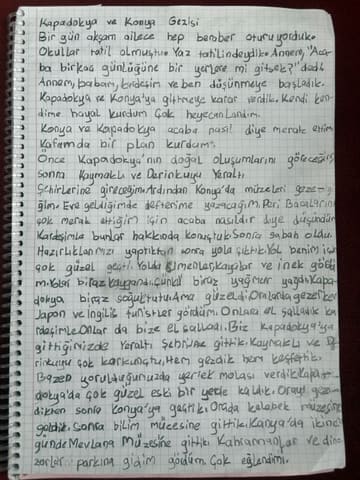 Kapadokya ve Konya Gezisi
Bir gün akşam ailece hep beraber oturuyorduk.
Okullar tatil olmuştu. Yaz tatilindeydik. Annem, "Aca-
ba birkaç günlüğüne bir yerlere mi gitsek?" dedi.
Annem, babam, kardeşim ve ben düşünmeye başladık.
Kapadokya ve Konya'ya gitmeye karar verdik. Kendi ken-
dime hayal kurdum. Çok heyecanlandım.
Konya ve Kapadokya acaba nasıl diye merak ettim.
Kafamda bir plan kurdum.
Önce Kapadokya'nın doğal oluşumlarını göreceğiz
sonra Kaymaklı ve Derinkuyu Yeraltı
Şehirlerine gireceğim. Ardından Konya'da müzeleri geze-
ğim. Eve geldiğimde defterime yazıcağım. Peri Bacalarını
çok merak ettiğim için acaba nasıldır diye düşündüm
Kardeşimle bunlar hakkında konuştuk. Sonra sabah oldu.
Hazırlıklarımızı yaptıktan sonra yola çıktık. Yol benim için
çok güzel geçti. Yolda
biraz yağmur yağdı. Kapa-
dokya biraz soğuktu. Ama güzeldi. Oralarda gezerken
Japon ve İngiliz turistler gördüm. Onlara el salladık ka
rdeşimle. Onlar da bize el salladı. Biz Kapadokya'ya
gittiğimizde Yeraltı Şehrine gittik. Kaymaklı ve De
rinkuyu çok korkunçtu. Hem gezdik hem keşfettik.
Bazen yorulduğumuzda yemek molası verdik. Kapa-
dokya'da çok güzel eski bir yerde kaldık. Orayı gez-
dikten sonra Konya'ya geçtik. Orada kelebek müzesine
geldik. Sonra bilim müzesine gittik. Konya'da ikinci
günde Mevlana Müzesine gittik. Kahramanlar ve dino
zorlar parkına gidim gördüm. Çok eğlendimi.